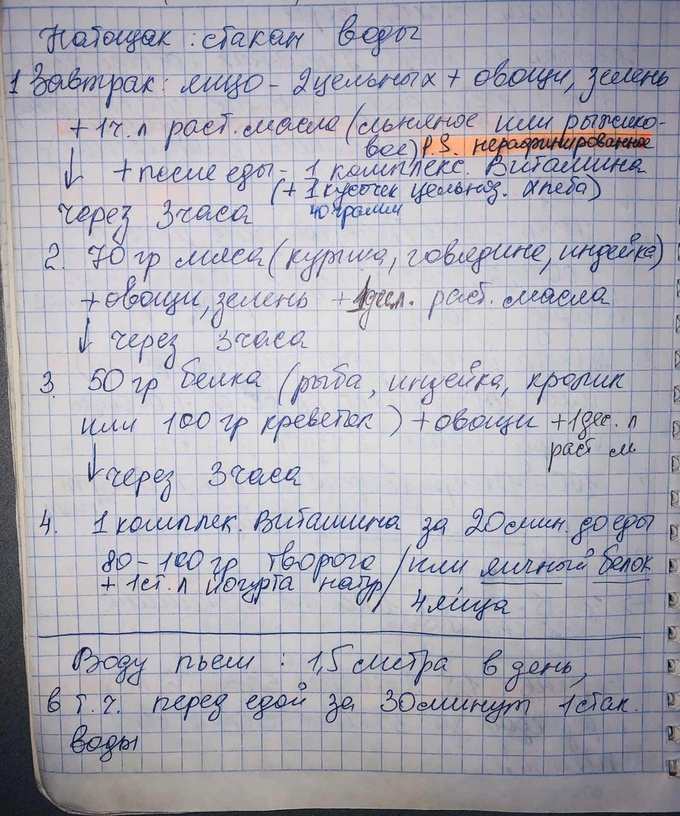 Натощак: стакан воды
1 Завтрак: яйцо - 2 цельных + овощи, зелень
+ 1 ч. л раст. масла (льняное или рыжико-
вое) P.S. нерафинированное
↓ + после еды - 1 комплекс. Витамина
(+ 1 кусочек цельноз. хлеба)
через 3 часа 40 грамм
2. 70 гр мяса (курица, говядина, индейка)
+ овощи, зелень + 1 дес л. раст. масла
↓ через 3 часа
3. 50 гр белка (рыба, индейка, кролик
или 100 гр креветок) + овощи + 1 дес. л
раст м.
↓ через 3 часа
4. 1 комплек. Витамина за 20 мин. до еды
80-100 гр творога / или яичный белок
+ 1 ст. л йогурта натур / 4 яйца
Воду пьем: 1,5 литра в день,
в т. ч. перед едой за 30 минут 1 стак.
воды